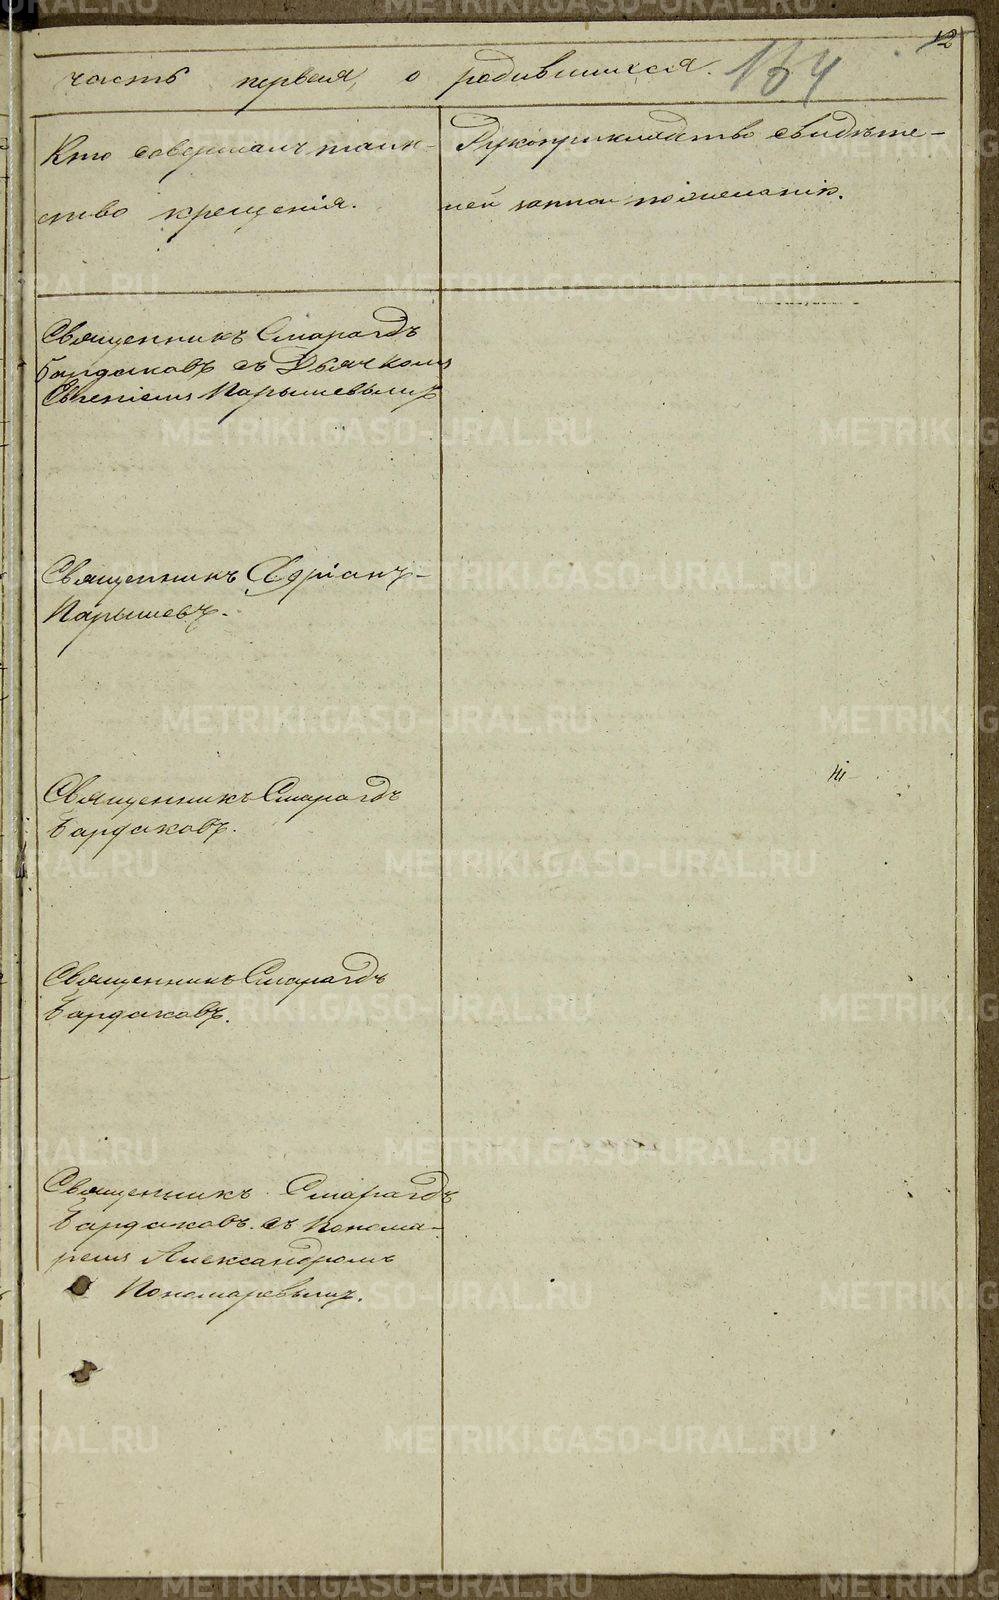 12
часть первая, о родившихся. 134
Кто совершалъ таин-
ство крещенія.
Рукоприкладство свидѣте-
лей записи по желанію.
Священникъ Смарагдъ
Бардаковъ съ Дьячкомъ
Евгеніемъ Парышевымъ
Священникъ Адріанъ
Парышевъ.
Священникъ Смарагдъ
Бардаковъ.
Священникъ Смарагдъ
Бардаковъ.
Священникъ Смарагдъ
Бардаковъ съ Понома-
ремъ Александромъ
Пономаревымъ.
METRIKI.GASO-URAL.RU